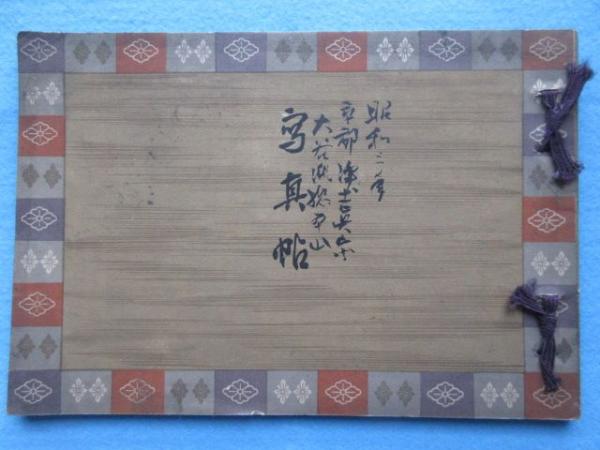 昭和三年
京都 浄土真宗
大谷派総本山
写真帖